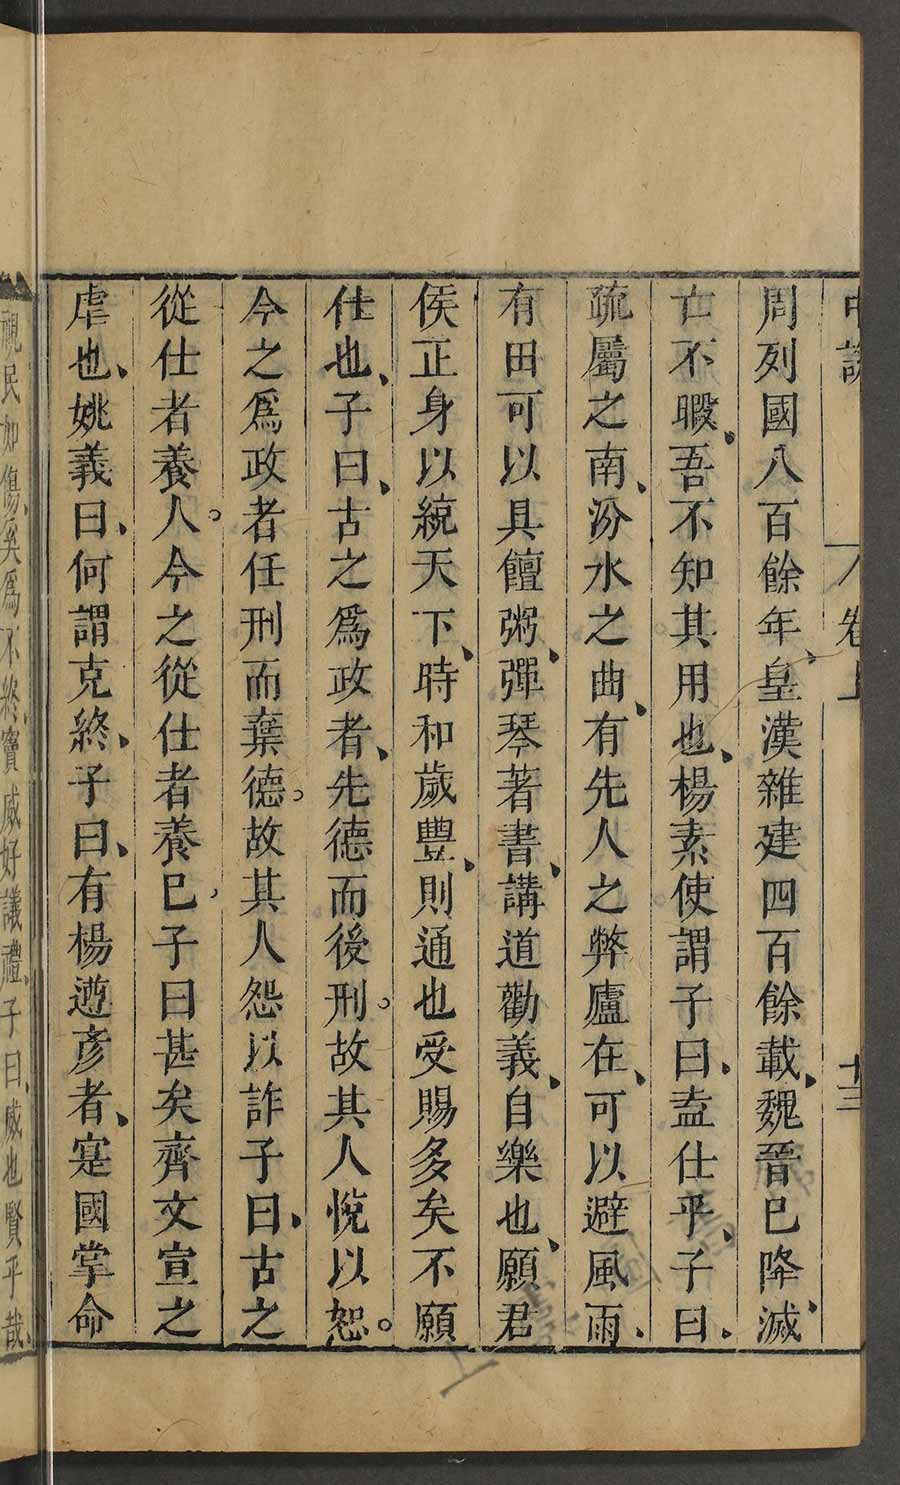 中說 卷上 十三
周列國八百餘年皇漢雜建四百餘載魏晉已降滅
亡不暇吾不知其用也楊素使謂子曰盍仕乎子曰
疏屬之南汾水之曲有先人之弊廬在可以避風雨
有田可以具饘粥彈琴著書講道勸義自樂也願君
侯正身以統天下時和歲豐則通也受賜多矣不願
仕也子曰古之爲政者先德而後刑故其人悅以恕
今之爲政者任刑而棄德故其人怨以詐子曰古之
從仕者養人今之從仕者養已子曰甚矣齊文宣之
虐也姚義曰何謂克終子曰有楊遵彥者寔國掌命
視民如傷奚爲不終竇威好議禮子曰威也賢乎哉